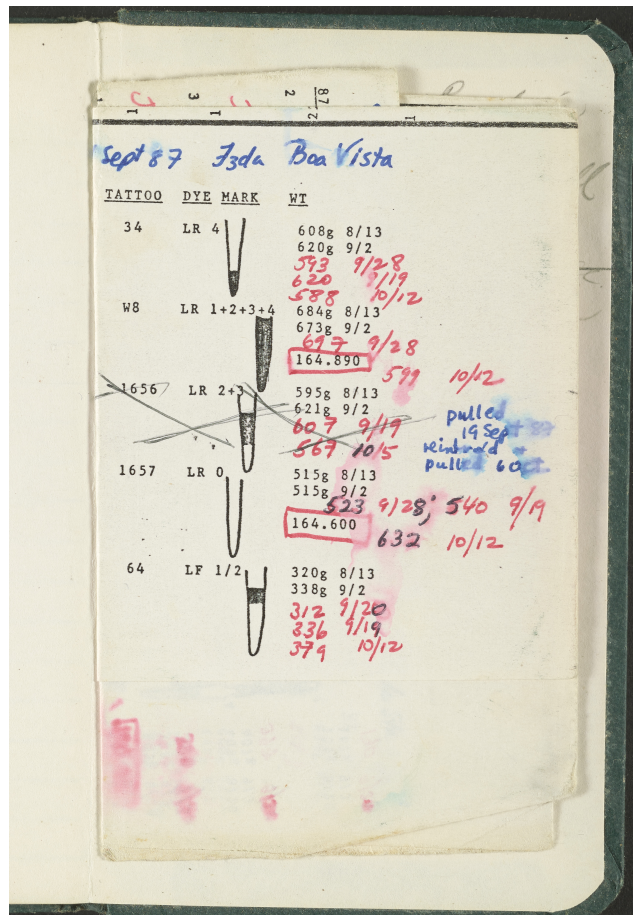 3 1 2 87 2 1
Sept 87 Fzda Boa Vista
TATTOO DYE MARK WT
34 LR 4 608g 8/13
620g 9/2
593 9/28
620 9/19
588 10/12
W8 LR 1+2+3+4 684g 8/13
673g 9/2
697 9/28
164.890
599 10/12
1656 LR 2+3 595g 8/13
621g 9/2
607 9/19
567 10/5
pulled
19 Sept 87
reintrod +
pulled 6 Oct.
1657 LR 0 515g 8/13
515g 9/2
523 9/28; 540 9/19
164.600
632 10/12
64 LF 1/2 320g 8/13
338g 9/2
312 9/20
336 9/19
379 10/12